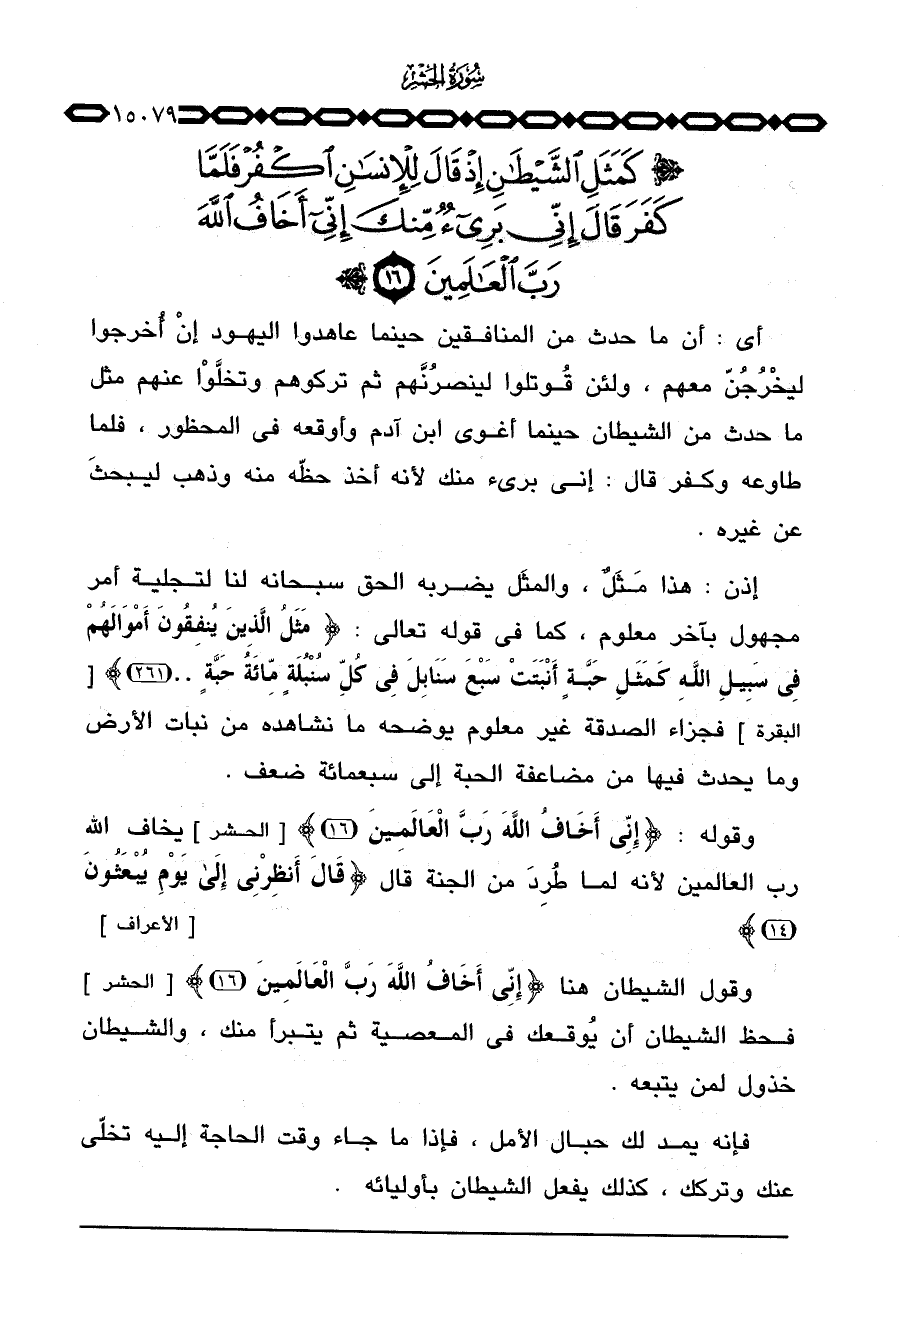 سُورَةُ الحَشْرِ
١٥٠٧٩
كَمَثَلِ ٱلشَّيْطَٰنِ إِذْ قَالَ لِلْإِنسَٰنِ ٱكْفُرْ فَلَمَّا
كَفَرَ قَالَ إِنِّي بَرِىٓءٌ مِّنكَ إِنِّىٓ أَخَافُ ٱللَّهَ
رَبَّ ٱلْعَٰلَمِينَ ١٦
أى : أن ما حدث من المنافقين حينما عاهدوا اليهود إنْ أُخرجوا
ليخْرُجُنّ معهم ، ولئن قُوتلوا لينصرُنَّهم ثم تركوهم وتخلَّوْا عنهم مثل
ما حدث من الشيطان حينما أغوى ابن آدم وأوقعه فى المحظور ، فلما
طاوعه وكفر قال : إنى برىء منك لأنه أخذ حظّه منه وذهب ليبحثَ
عن غيره .
إذن : هذا مَثَلٌ ، والمثل يضربه الحق سبحانه لنا لتجلية أمر
مجهول بآخر معلوم ، كما فى قوله تعالى : ﴿ مَثَلُ الَّذِينَ يُنفِقُونَ أَمْوَالَهُمْ
فِى سَبِيلِ اللَّهِ كَمَثَلِ حَبَّةٍ أَنْبَتَتْ سَبْعَ سَنَابِلَ فِى كُلِّ سُنْبُلَةٍ مِّائَةُ حَبَّةٍ ..(٢٦١)﴾ [
البقرة ] فجزاء الصدقة غير معلوم يوضحه ما نشاهده من نبات الأرض
وما يحدث فيها من مضاعفة الحبة إلى سبعمائة ضعف .
وقوله : ﴿إِنِّى أَخَافُ اللَّهَ رَبَّ الْعَالَمِينَ (١٦)﴾ [ الحشر ] يخاف الله
رب العالمين لأنه لما طُرِدَ من الجنة قال ﴿قَالَ أَنظِرْنِى إِلَىٰ يَوْمِ يُبْعَثُونَ
(١٤)﴾ [ الأعراف ]
وقول الشيطان هنا ﴿إِنِّى أَخَافُ اللَّهَ رَبَّ الْعَالَمِينَ (١٦)﴾ [ الحشر ]
فحظ الشيطان أن يُوقعك فى المعصية ثم يتبرأ منك ، والشيطان
خذول لمن يتبعه .
فإنه يمد لك حبال الأمل ، فإذا ما جاء وقت الحاجة إليه تخلّى
عنك وتركك ، كذلك يفعل الشيطان بأوليائه .